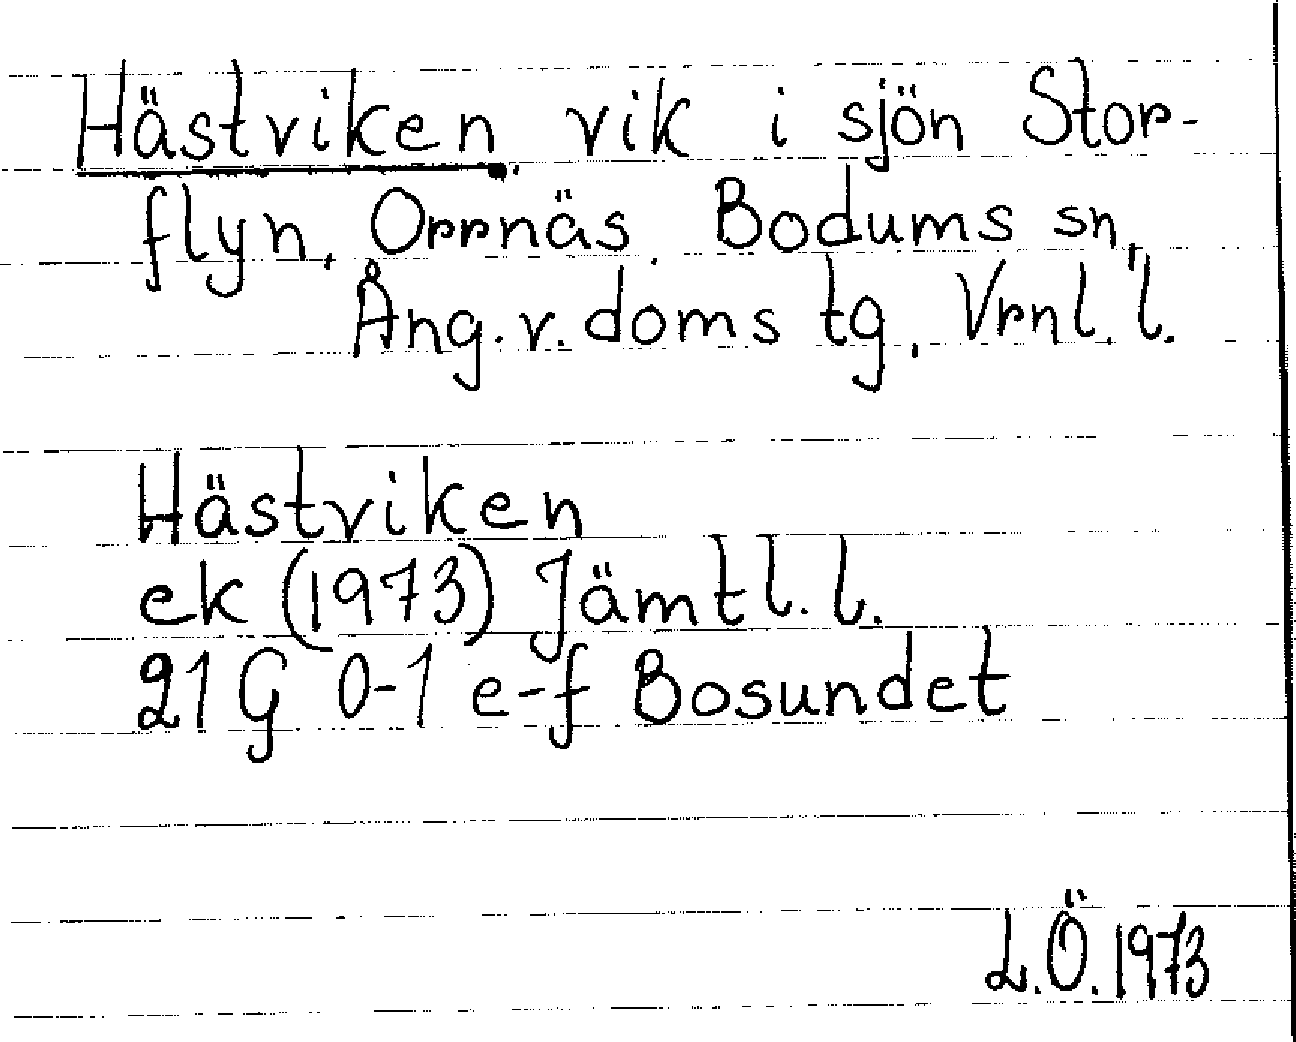 Hästviken, vik i sjön Stor-
flyn, Orrnäs, Bodums sn,
Ång. v. doms tg, Vrnl. l.
Hästviken
ek (1973) Jämtl. l.
21 G 0-1 e-f Bosundet
L.Ö. 1973